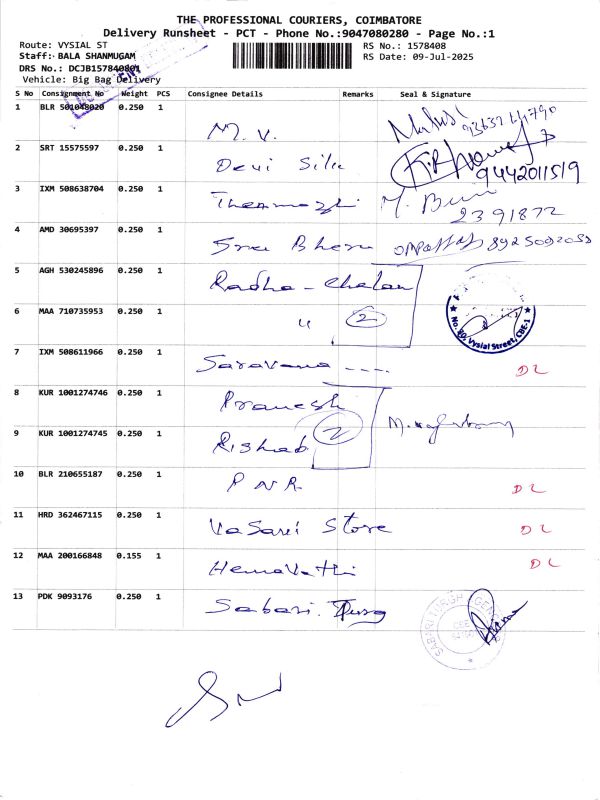 THE PROFESSIONAL COURIERS, COIMBATORE
Delivery Runsheet - PCT - Phone No.:9047080280 - Page No.:1
Route: VYSIAL ST
RS No.: 1578408
Staff: BALA SHANMUGAM
RS Date: 09-Jul-2025
DRS No.: DCJB157840801
Vehicle: Big Bag Delivery
S No Consignment No Weight PCS Consignee Details Remarks Seal & Signature
1 BLR 501048020 0.250 1 M. V.
2 SRT 15575597 0.250 1 Devi Silk 9442011519
3 IXM 508638704 0.250 1 Thenmozhi M. 2391872
4 AMD 30695397 0.250 1 Sree 8925092053
5 AGH 530245896 0.250 1 Radha - Chelan
6 MAA 710735953 0.250 1 " 2
No. Vysial Street, CBE-1
7 IXM 508611966 0.250 1 Saravana ---- DL
8 KUR 1001274746 0.250 1 Pranesh
9 KUR 1001274745 0.250 1 Rishab 2
10 BLR 210655187 0.250 1 P N R DL
11 HRD 362467115 0.250 1 Vasavi Store DL
12 MAA 200166848 0.155 1 Hemavathi DL
13 PDK 9093176 0.250 1 Sabari